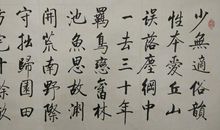 少無適俗韻
性本愛丘山
误落塵網中
一去三十年
羈鳥戀舊林
池魚思故淵
開荒南野際
守拙歸園田
方宅十餘畝